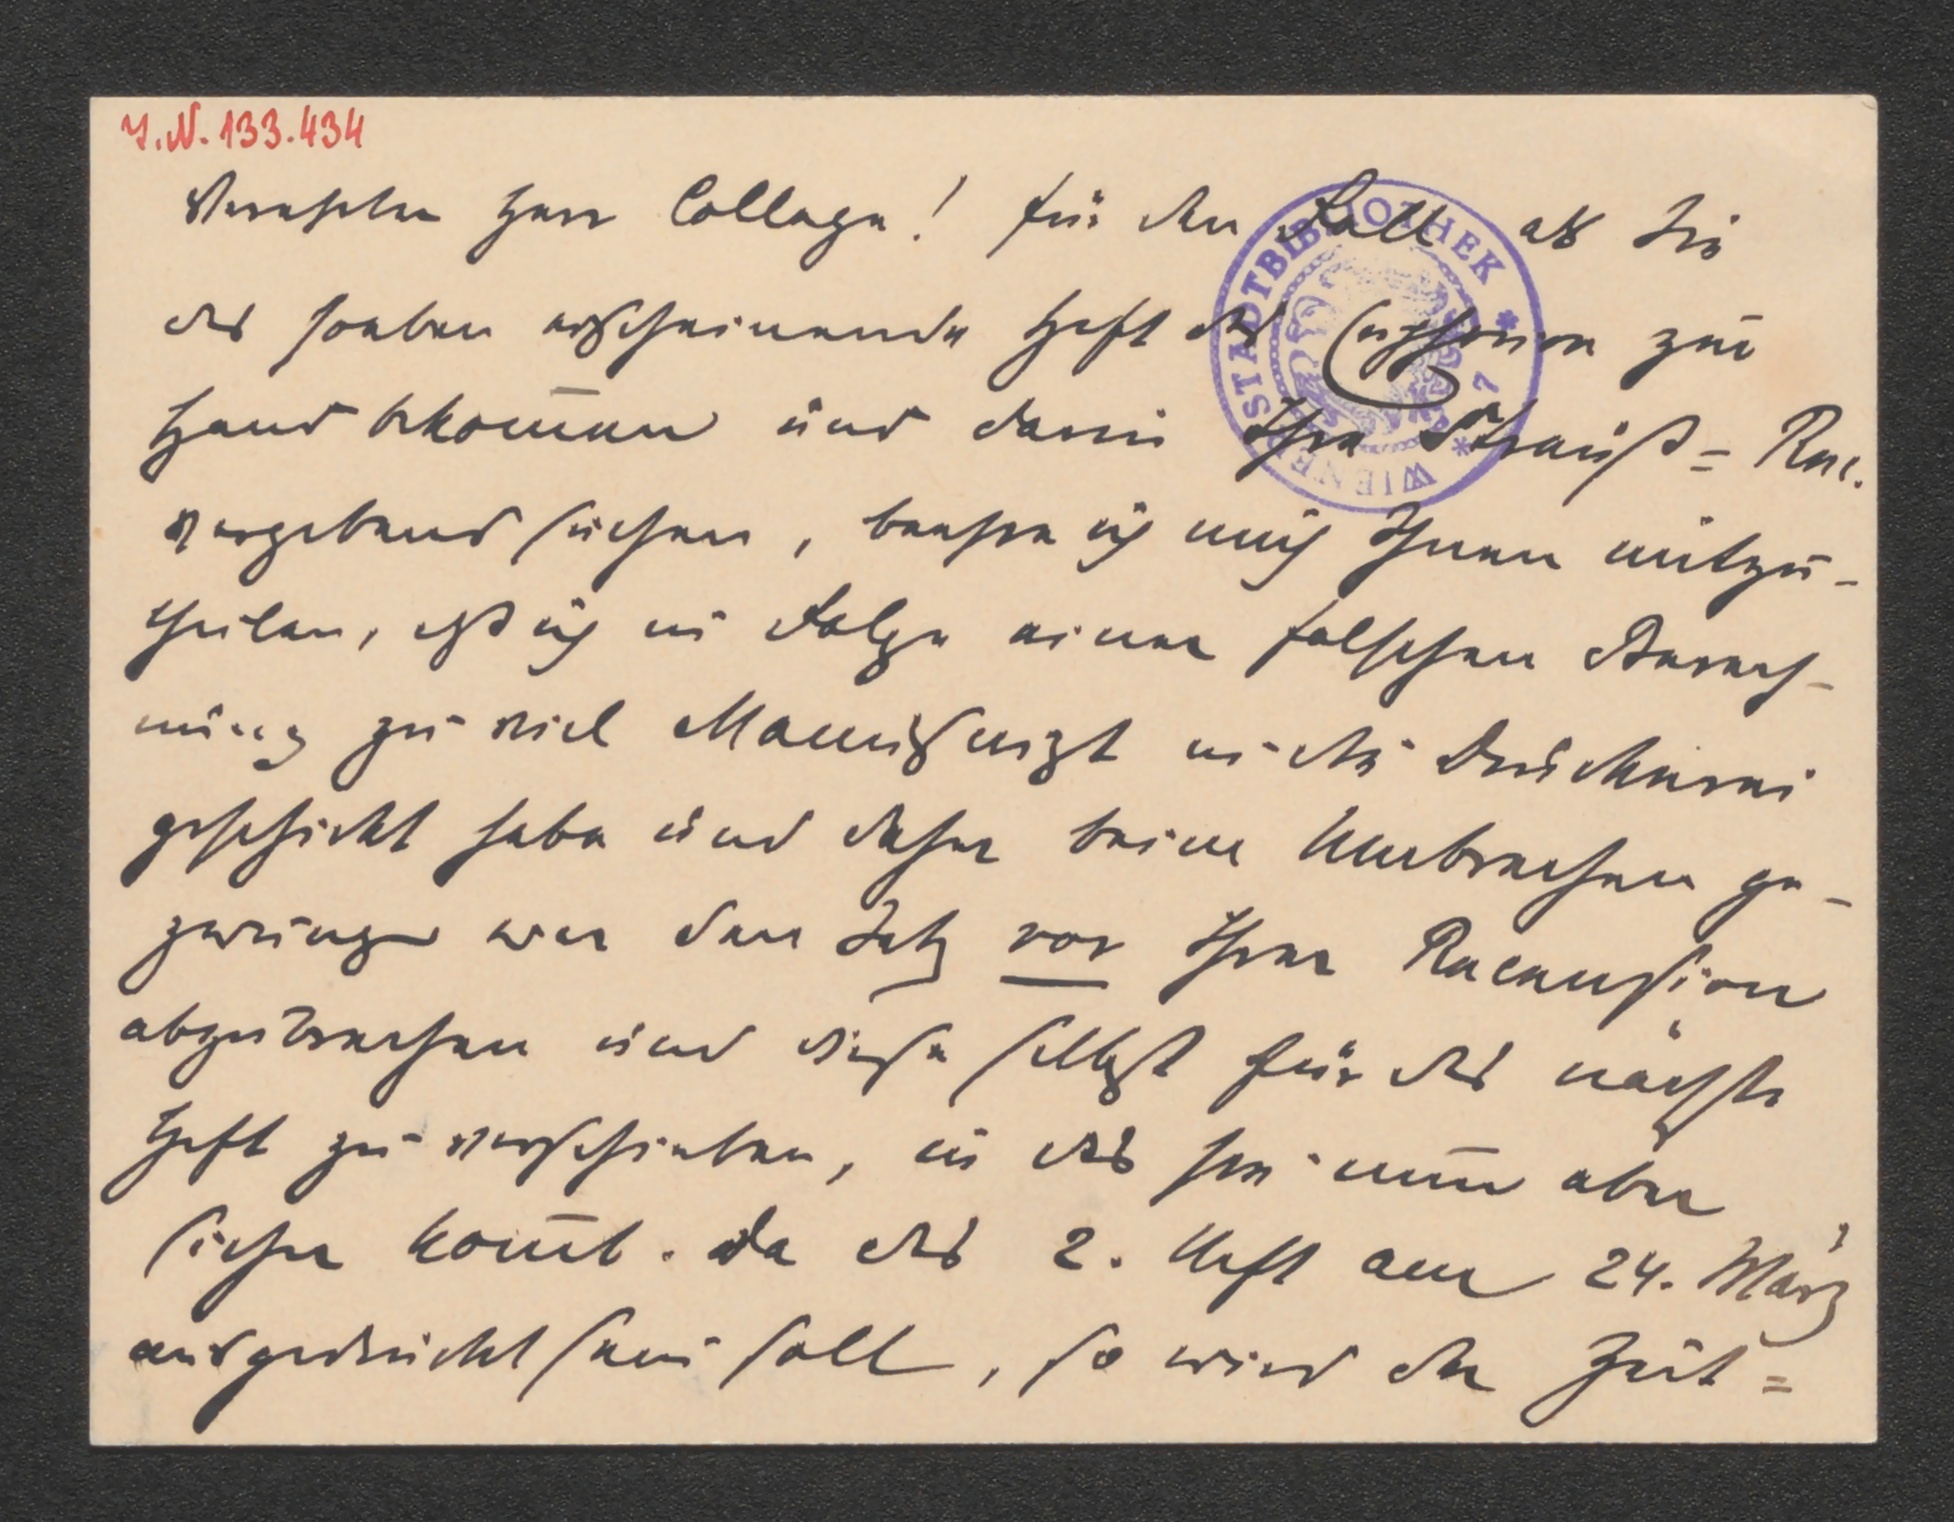 J.N. 133.434
Verehrter Herr College! Für den Fall als Sie
das soeben erscheinende Heft des Euphorion zur
Hand bekom̄en und darin Ihre Strauß= Rec.
vergebens suchen, beehre ich mich Ihnen mitzu-
theilen, daß ich in Folge einer falschen Berech-
nung zu viel Manuskript in die Druckerei
geschickt habe und daher beim Umbrechen ge-
zwungen war den Satz vor Ihrer Recension
abzubrechen und diese selbst für das nächste
Heft zu verschieben, in das sie nun aber
sicher kom̄t. Da das 2. Heft am 24. März
ausgedruckt sein soll, so wird der Zeit=
WIENER STADTBIBLIOTHEK